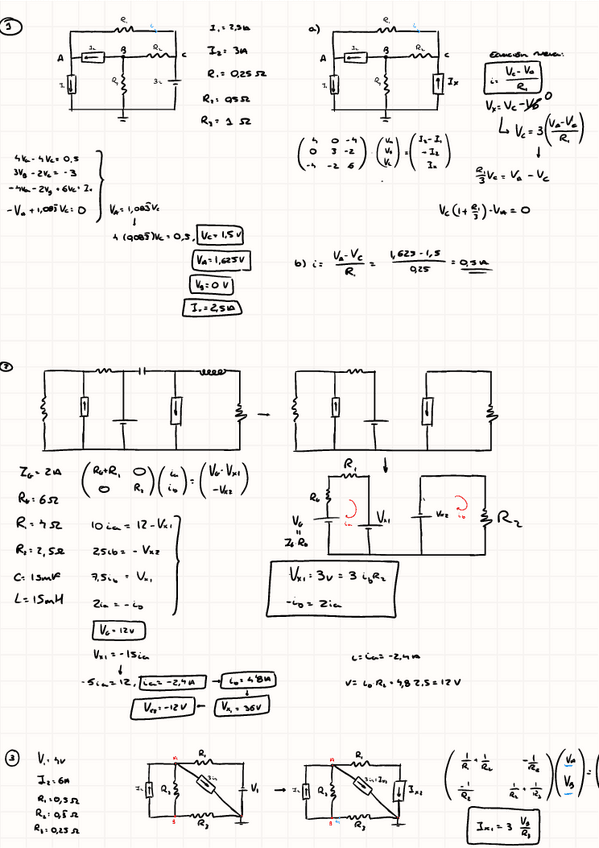 1
A
B
C
R₁
R₂
I₁ = 2,5A
I₂ = 3A
R₁ = 0,25 Ω
R₂ = 0,5 Ω
R₃ = 1 Ω
a)
A
B
C
R₁
R₂
Iₓ
i = (Vc - Va) / R₁
Vx = Vc - VB 0
↳ Vc = 3 (Va - Vc / R₁)
R₁/3 Vc = Va - Vc
Vc (1 + R₁/3) - Va = 0
( 4 0 -4
0 3 -2
-4 -2 6 )
4Va - 4Vc = 0,5
3VB - 2Vc = -3
-4Va - 2VB + 6Vc = Iₓ
-Va + 1,083Vc = 0
Va = 1,083Vc
4 (0,083)Vc = 0,5,
Vc = 1,5V
Va = 1,625V
VB = 0V
Iₓ = 2,5A
b) i = (Va - Vc) / R₁ = (1,625 - 1,5) / 0,25 = 0,5A
2
IG = 2A
RG = 6Ω
R₁ = 4Ω
R₂ = 2,5Ω
C = 15mF
L = 15mH
( RG+R₁ 0
0 R₂ ) ( ia
ib ) = ( VG - Vx1
-Vx2 )
10ia = 12 - Vx1
2,5ib = -Vx2
7,5ib = Vx1
2ia = -ib
VG = 12V
Vx1 = -15ia
-5ia = 12,
ia = -2,4A
ib = 4,8A
Vx2 = -12V
Vx1 = 36V
R₁
RG
VG
=
IG·RG
ia
Vx1
Vx2
ib
R₂
Vx1 = 3v = 3 ibR₂
-ib = 2ia
i = ia = -2,4A
v = ib·R₂ = 4,8·2,5 = 12V
3
V₁ = 4V
I₂ = 6A
R₁ = 0,5 Ω
R₂ = 0,5 Ω
R₃ = 0,25 Ω
A
R₁
R₂
V₁
R₃
A
R₁
R₂
Ix2
R₃
( 1/R₁ + 1/R₂ -1/R₂
-1/R₂ 1/R₂ + 1/R₃ ) ( VA
VB ) = (
Ix1 = 3 VB/R₃